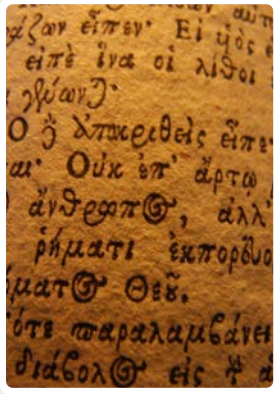 αὐτῷ
άζων εἶπεν· Εἰ υἱὸς
εἰπὲ ἵνα οἱ λίθοι
γένων)·
Ὁ δὲ ἀποκριθεὶς εἶπε·
ται· Οὐκ ἐπ' ἄρτῳ
ἄνθρωπος, ἀλλ'
ῥήματι ἐκπορευο
ματος Θεοῦ.
ότε παραλαμβάνει
διάβολος εἰς τ